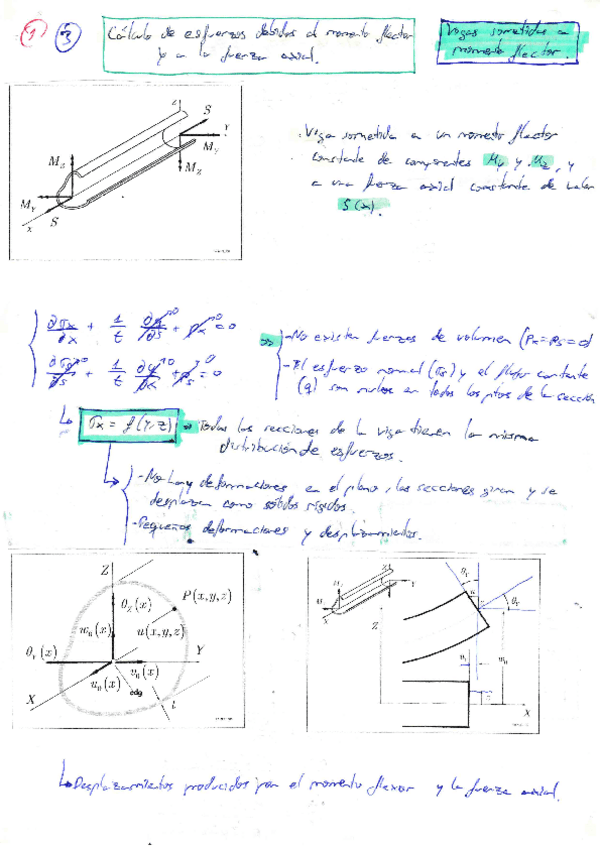 1 3 Cálculo de esfuerzos debidos al momento flector
y a la fuerza axial.
Vigas sometidas a
momento flector.
Z S Y
M_Y
M_Z
M_Z
M_Y S
X
· Viga sometida a un momento flector
constante de componentes M_y y M_z, y
a una fuerza axial constante de valor
S(x).
∂σx/∂x + 1/t ∂q/∂s + px = 0
∂σs/∂s + 1/t ∂q/∂x + ps = 0
⇒ - No existen fuerzas de volumen (Px = Ps = 0)
- El esfuerzo normal (σs) y el flujo constante
(q) son nulos en todos los ptos de la sección
↳ σx = f(Y, Z) ⇒ Todas las secciones de la viga tienen la misma
distribución de esfuerzos.
- No hay deformaciones en el plano, las secciones giran y se
desplazan como sólidos rígidos.
- Pequeñas deformaciones y desplazamientos.
Z
P(x,y,z)
θ_Z(x)
w_0(x) u(x,y,z)
θ_Y(x) Y
X u_0(x) v_0(x)
cdg
θ_Y
θ_Y
Z
w_0
X
↳ Desplazamientos producidos por el momento flexor y la fuerza axial.